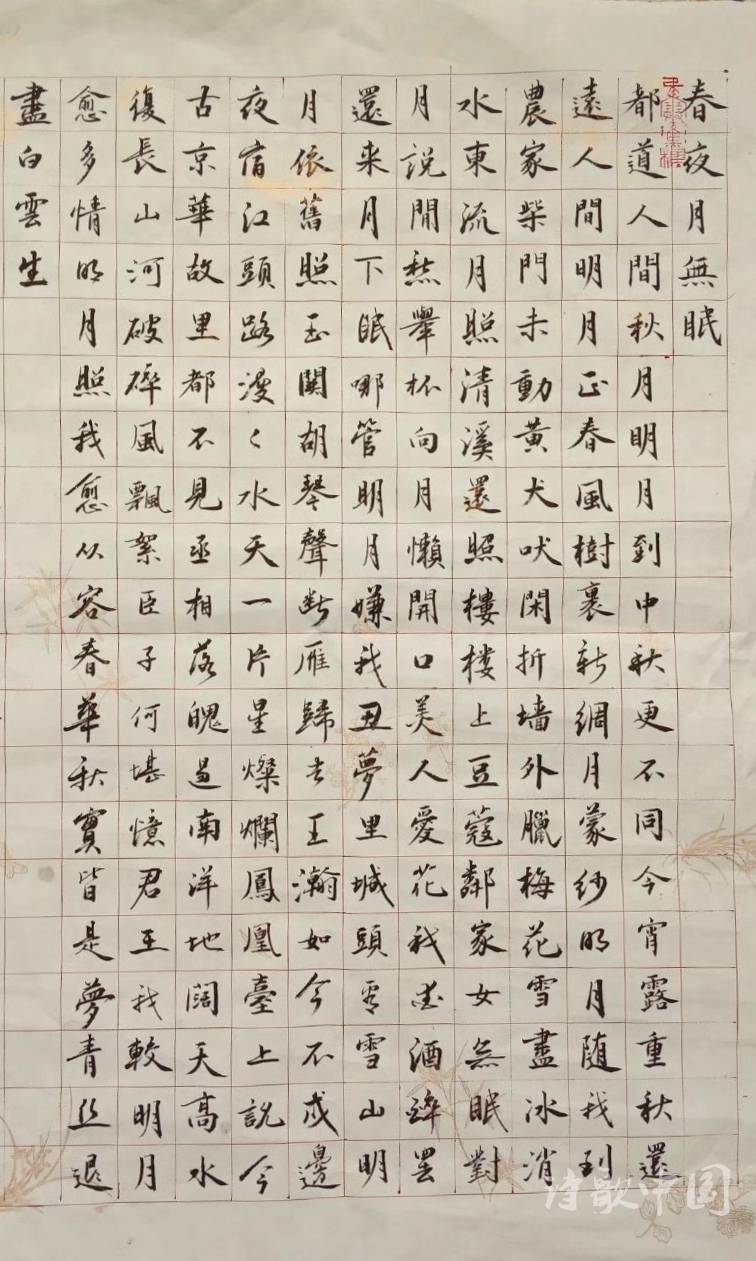 春夜月無眠
都道人間秋月明月到中秋更不同今宵露重秋還
遠人間明月正春風樹裏新綢月蒙紗明月随我到
農家柴門未動黃犬吠閑折墻外臘梅花雪盡冰消
水東流月照清溪還照樓樓上豆蔻鄰家女無眠對
月說閒愁舉杯向月懶開口美人愛花我愛酒醉罢
還来月下眠哪管明月嫌我丑夢里城頭雪山明
月依舊照玉關胡琴聲断雁歸去王瀚如今不戍邊
夜宿江頭路漫〻水天一片星燦爛鳳凰臺上説今
古京華故里都不見丞相落魄過南洋地闊天高水
復長山河破碎風飄絮臣子何堪憶君王我較明月
愈多情明月照我愈从容春華秋實皆是夢青丝退
盡白雲生
诗歌中国